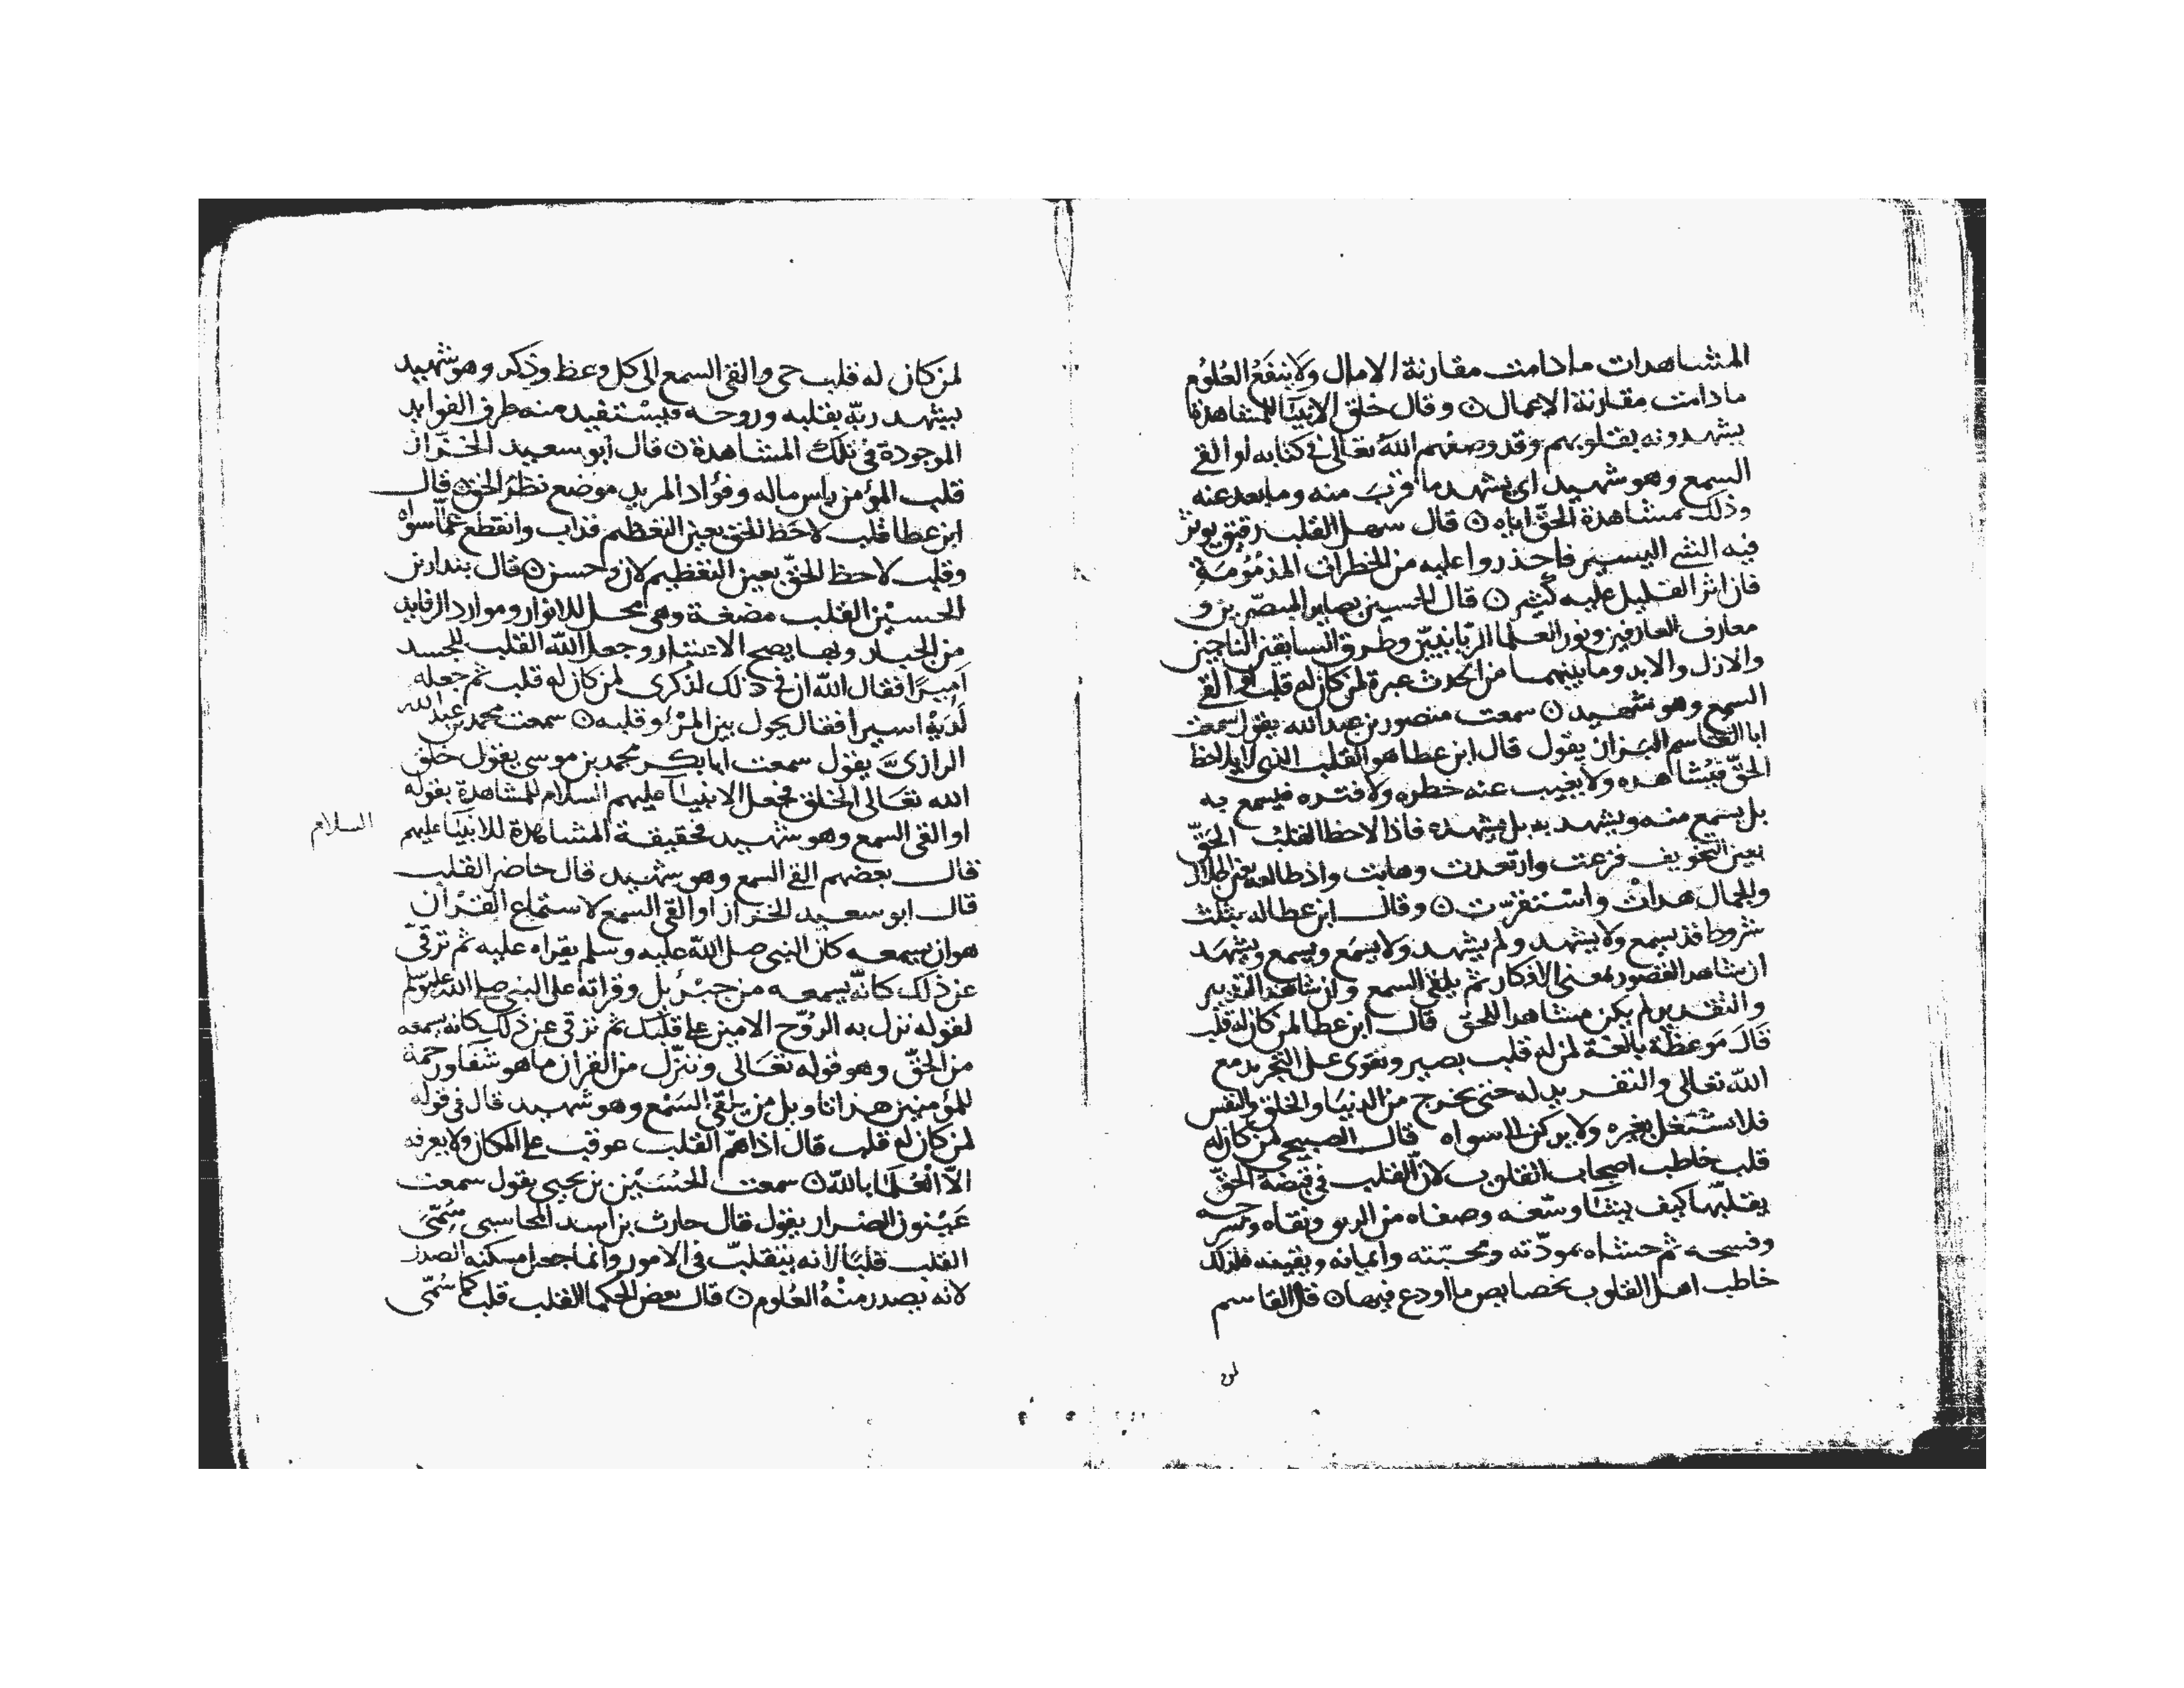 المشاهدات مادامت مقارنة الامال ولا ينفع العلوم
مادامت مقارنة الاعمال ن وقال خلق الانبيآ للمشاهدة
يشهدونه بقلوبهم وقد وصفهم الله تعالى في كتابه او القى
السمع وهو شهيد اى يشهد ما قرب منه وما بعد عنه
وذلك بمشاهدة الحقّ اياه ن قال سهل القلب رقيق يوثر
فيه الشى اليسير فاحذروا عليه من الخطرات المذمومة
فان اثر القليل عليه كثير ن قال الحسين بصاير المبصرين و
معارف العارفين ونور العلما الربّانيّين وطرق السابقين الناجين
والازل والابد وما بينهما من الحدث عبرة لمن كان له قلب او القى
السمع وهو شهيد ن سمعت منصور بن عبدالله يقول سمعت
ابا القاسم البزاز يقول قال ابن عطا هو القلب الذى يلاحظ
الحقّ فيشاهده ولا يغيب عنه خطره ولا فتره فيسمع به
بل يسمع منه ويشهد به بل يشهده فاذا لاحظ القلب الحقّ
بعين التخويف فزعت وارتعدت وهابت واذا طالعه بعين الجلال
والجمال هدأت واستقرّت ن وقال ابن عطا له بثلث
شروط قد يسمع ولا يشهد ولم يشهد ولا يسمع ويسمع ويشهد
ان شاهد القصور بمعنى الاذكار ثم يلقى السمع وان شاهد التدبير
والتقدير لم يكن مشاهدا للحق قال ابن عطا لمن كان له قلب
قال موعظة بالغة لمن له قلب بصير ويقوى على التجريد مع
الله تعالى والتفريد له حتى يخرج من الدنيا والخلق والنفس
فلا يشتغل بغيره ولا يركن الى سواه قال الصبيحى لمن كان له
قلب خاطب اصحاب القلوب لانّ القلب في قبضة الحقّ
يقلّبها كيف يشا وسّعه وصفاه من الريو ونقاه وشرحه
وفسحه ثم حشاه بمودّته ومحبّته وايمانه ويقينه فلذلك
خاطب اهل القلوب بخصايص ما اودع فيها ن قال القاسم
لمن كان له قلب حى والقى السمع الى كل وعظ وذكر وهو شهيد
يشهد ربّه بقلبه وروحه فيستفيد منه طرف الفوايد
الموجودة في تلك المشاهدة ن قال ابو سعيد الخرّاز
قلب المؤمن راس ماله وفؤاد المريد موضع نظر الحق ن قال
ابن عطا قلب لاحظ الحق بعين التعظيم فذاب وانقطع عمّا سواه
وقلب لاحظ الحقّ بعين التعظيم لان وحسن ن قال بندار بن
الحسين القلب مضغة وهى محل للانوار وموارد الزوايد
من الجبار وبها يصح الاعتبار وجعل الله القلب للجسد
اميرًا فقال الله ان فى ذلك لذكرى لمن كان له قلب ثم جعله
لديه اسيرا فقال يحول بين المرء وقلبه ن سمعت محمد بن عبدالله
الرازى يقول سمعت ابا بكر محمد بن موسى يقول خلق
الله تعالى الخلق فجعل الانبيآ عليهم السلام للمشاهدة بقوله
او القى السمع وهو شهيد فحقيقة المشاهدة للانبيا عليهم
السلام
قال بعضهم القى السمع وهو شهيد قال حاضر القلب
قال ابو سعيد الخراز او القى السمع لاستماع القران
هو ان يسمعه كانّ النبى صلى الله عليه وسلم يقراه عليه ثم ترقى
عن ذلك كانّه يسمعه من جبرئيل وقراته على النبى صلى الله عليه وسلم
لقوله نزل به الروح الامين على قلبك ثم ترقى عن ذلك كانه يسمعه
من الحقّ وهو قوله تعالى وننزّل من القران ما هو شفا ورحمة
للمؤمنين هذا تاويل من يلقى السمع وهو شهيد قال فى قوله
لمن كان له قلب قال اذا همّ القلب عوقب على المكان ولا يعرفه
الاّ العلما بالله ن سمعت الحسين بن يحيى يقول سمعت
عبنوز الضرار يقول قال حارث بن اسد المحاسبى سمّى
القلب قلبًا لانه يتقلب فى الامور وانما جعل مسكنه الصدر
لانه يصدر منه العلوم ن قال بعض الحكما القلب قلب كما سُمّى